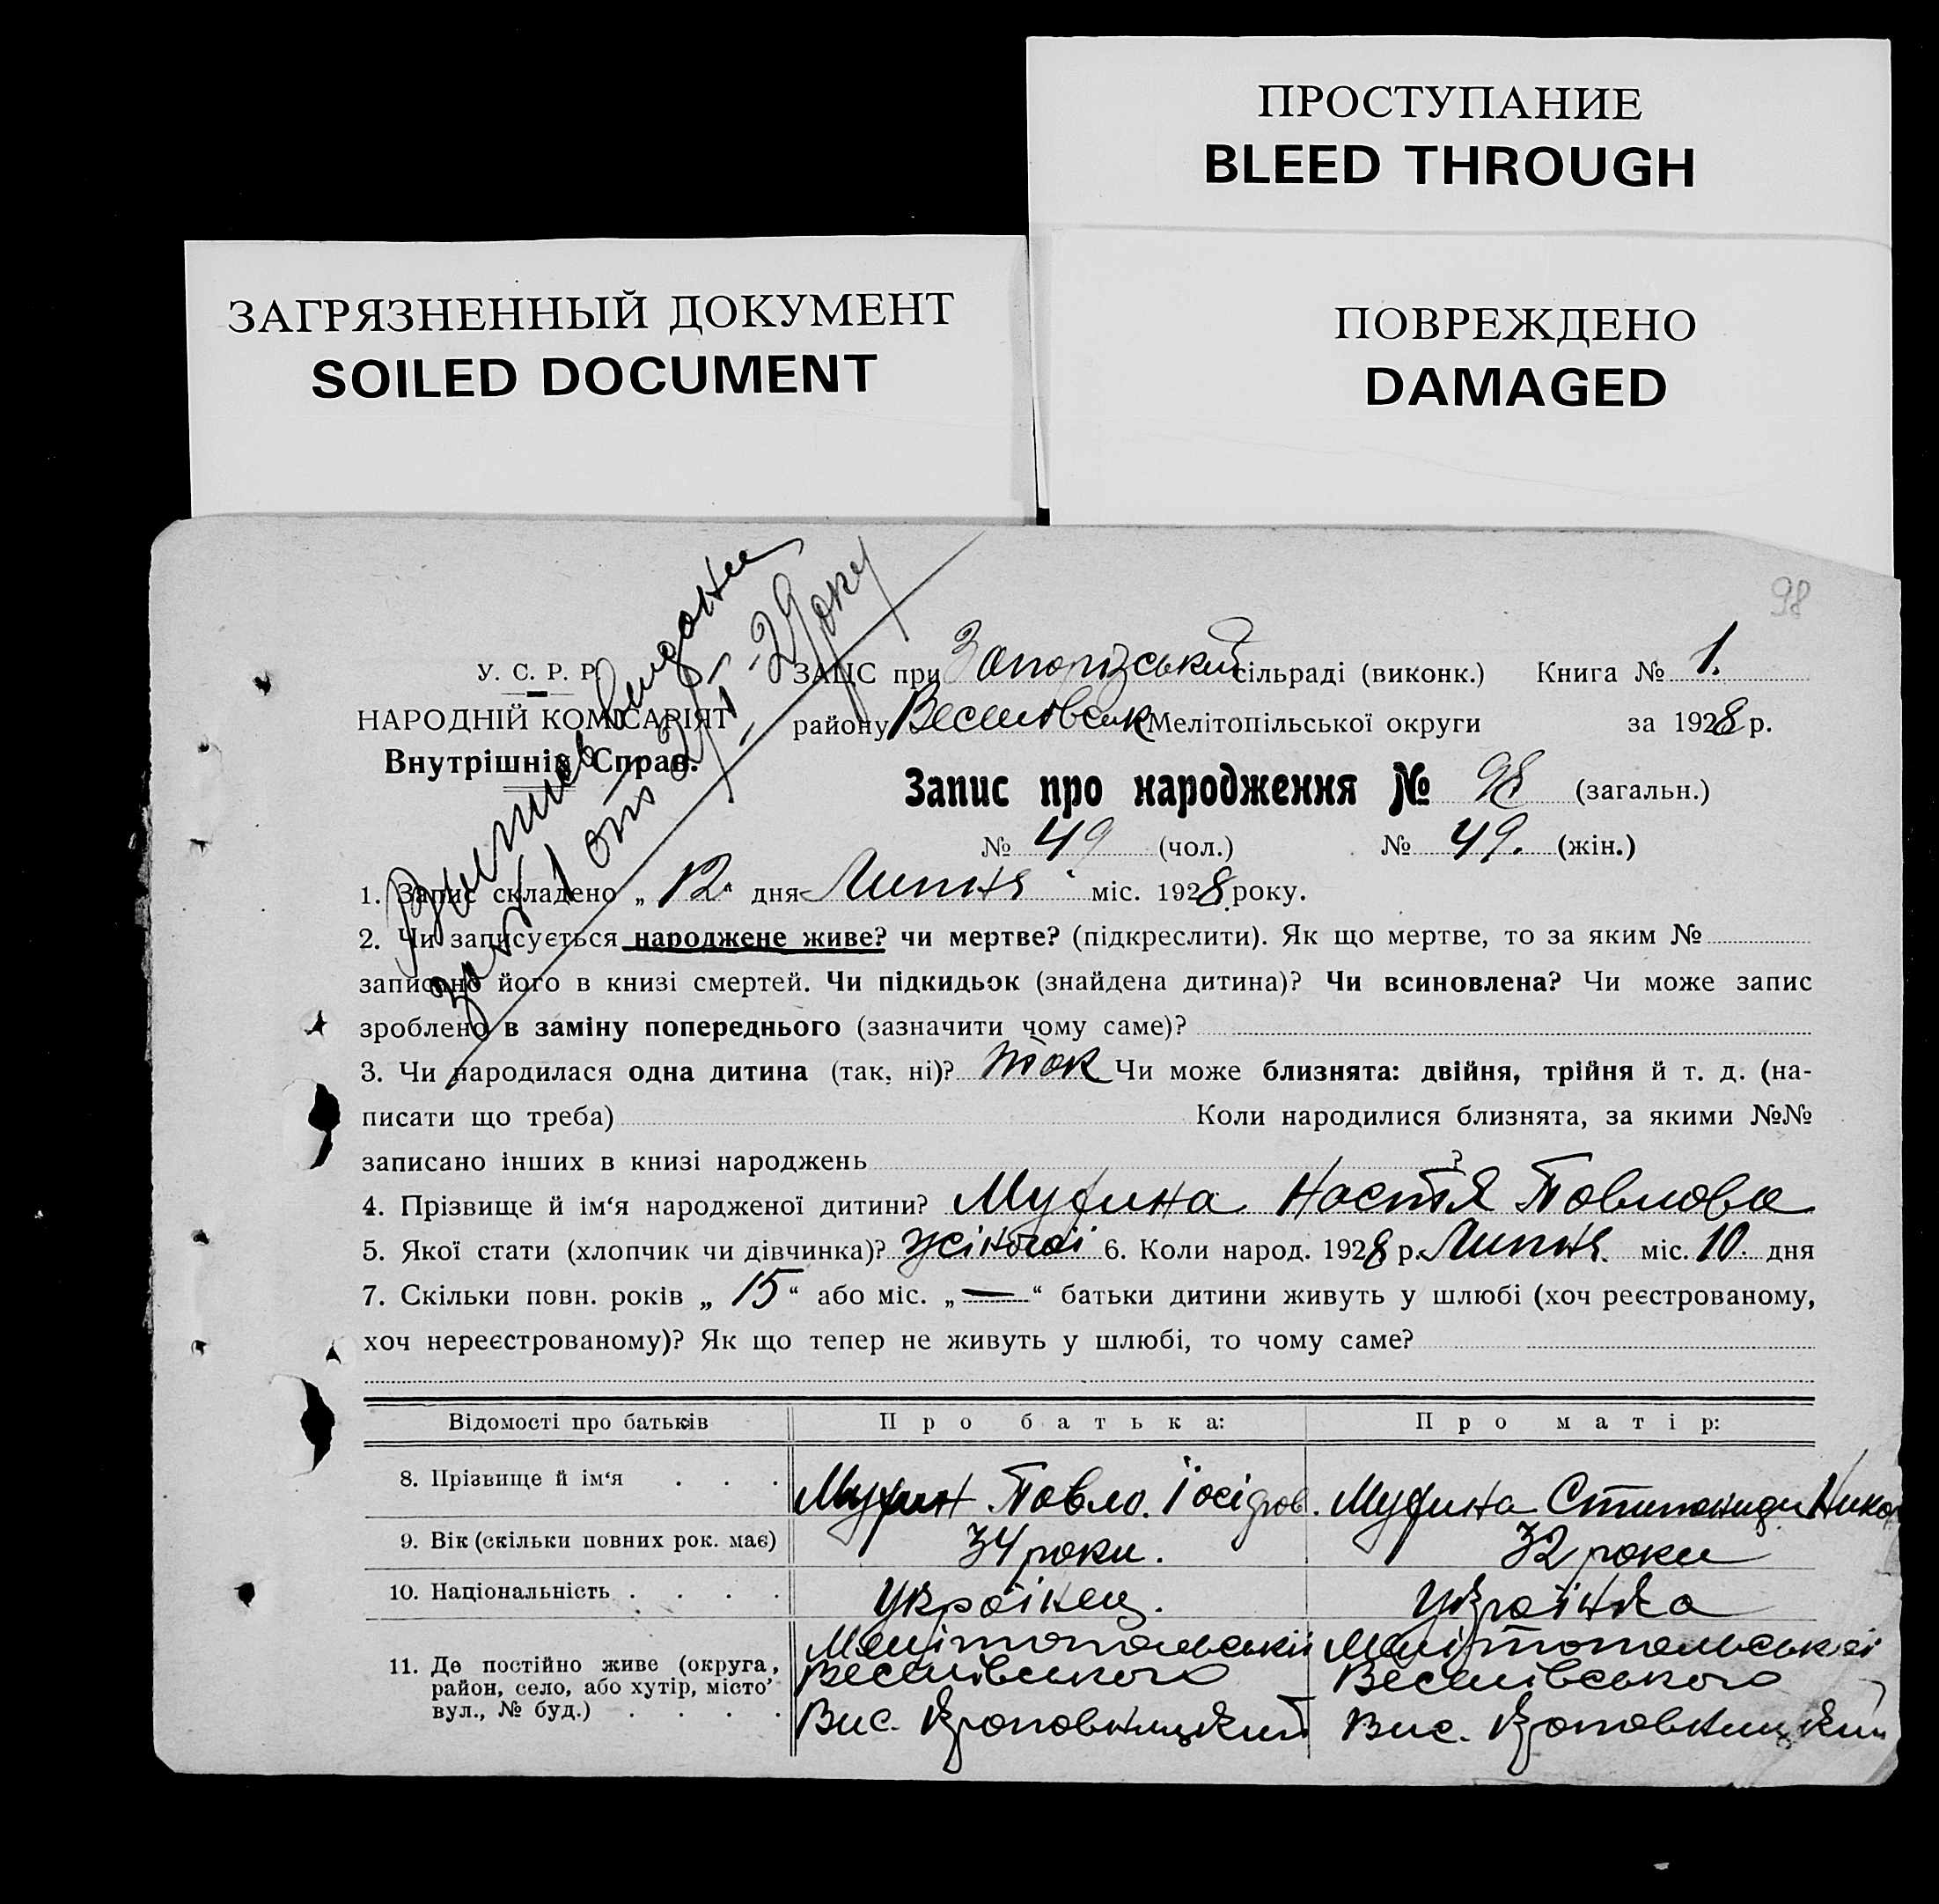 ПРОСТУПАНИЕ
BLEED THROUGH
ЗАГРЯЗНЕННЫЙ ДОКУМЕНТ
SOILED DOCUMENT
ПОВРЕЖДЕНО
DAMAGED
98
У. С. Р. Р.
НАРОДНІЙ КОМІСАРІЯТ
Внутрішніх Справ.
ЗАЦС при Запорізський сільраді (виконк.) Книга № 1.
району Веселовськ Мелітопільської округи за 1928 р.
Запис про народження № 98 (загальн.)
№ 49 (чол.) № 49. (жін.)
1. Запис складено „ 12 " дня Липня міс. 1928 року.
2. Чи записується народжене живе? чи мертве? (підкреслити). Як що мертве, то за яким №
записано його в книзі смертей. Чи підкидьок (знайдена дитина)? Чи всиновлена? Чи може запис
зроблено в заміну попереднього (зазначити чому саме)?
3. Чи народилася одна дитина (так, ні)? так Чи може близнята: двійня, трійня й т. д. (на-
писати що треба) Коли народилися близнята, за якими №№
записано інших в книзі народжень ?
4. Прізвище й ім‘я народженої дитини? Настя Павлова
5. Якої стати (хлопчик чи дівчинка)? 6. Коли народ. 1928 р. Липня міс. 10. дня
7. Скільки повн. років „ 15 “ або міс. „ — “ батьки дитини живуть у шлюбі (хоч реєстрованому,
хоч нереєстрованому)? Як що тепер не живуть у шлюбі, то чому саме?
Відомості про батьків Про батька: Про матір:
8. Прізвище й ім‘я . . . Павло.
9. Вік (скільки повних рок. має) 34 роки. 32 роки
10. Національність . . . . Українец. Українка
11. Де постійно живе (округа, Мелітопольськіі Мелітопольськаі
район, село, або хутір, місто, Веселівського Веселівського
вул., № буд.) . . . . Вис. Кроповницкий Вис. Кроповницкий